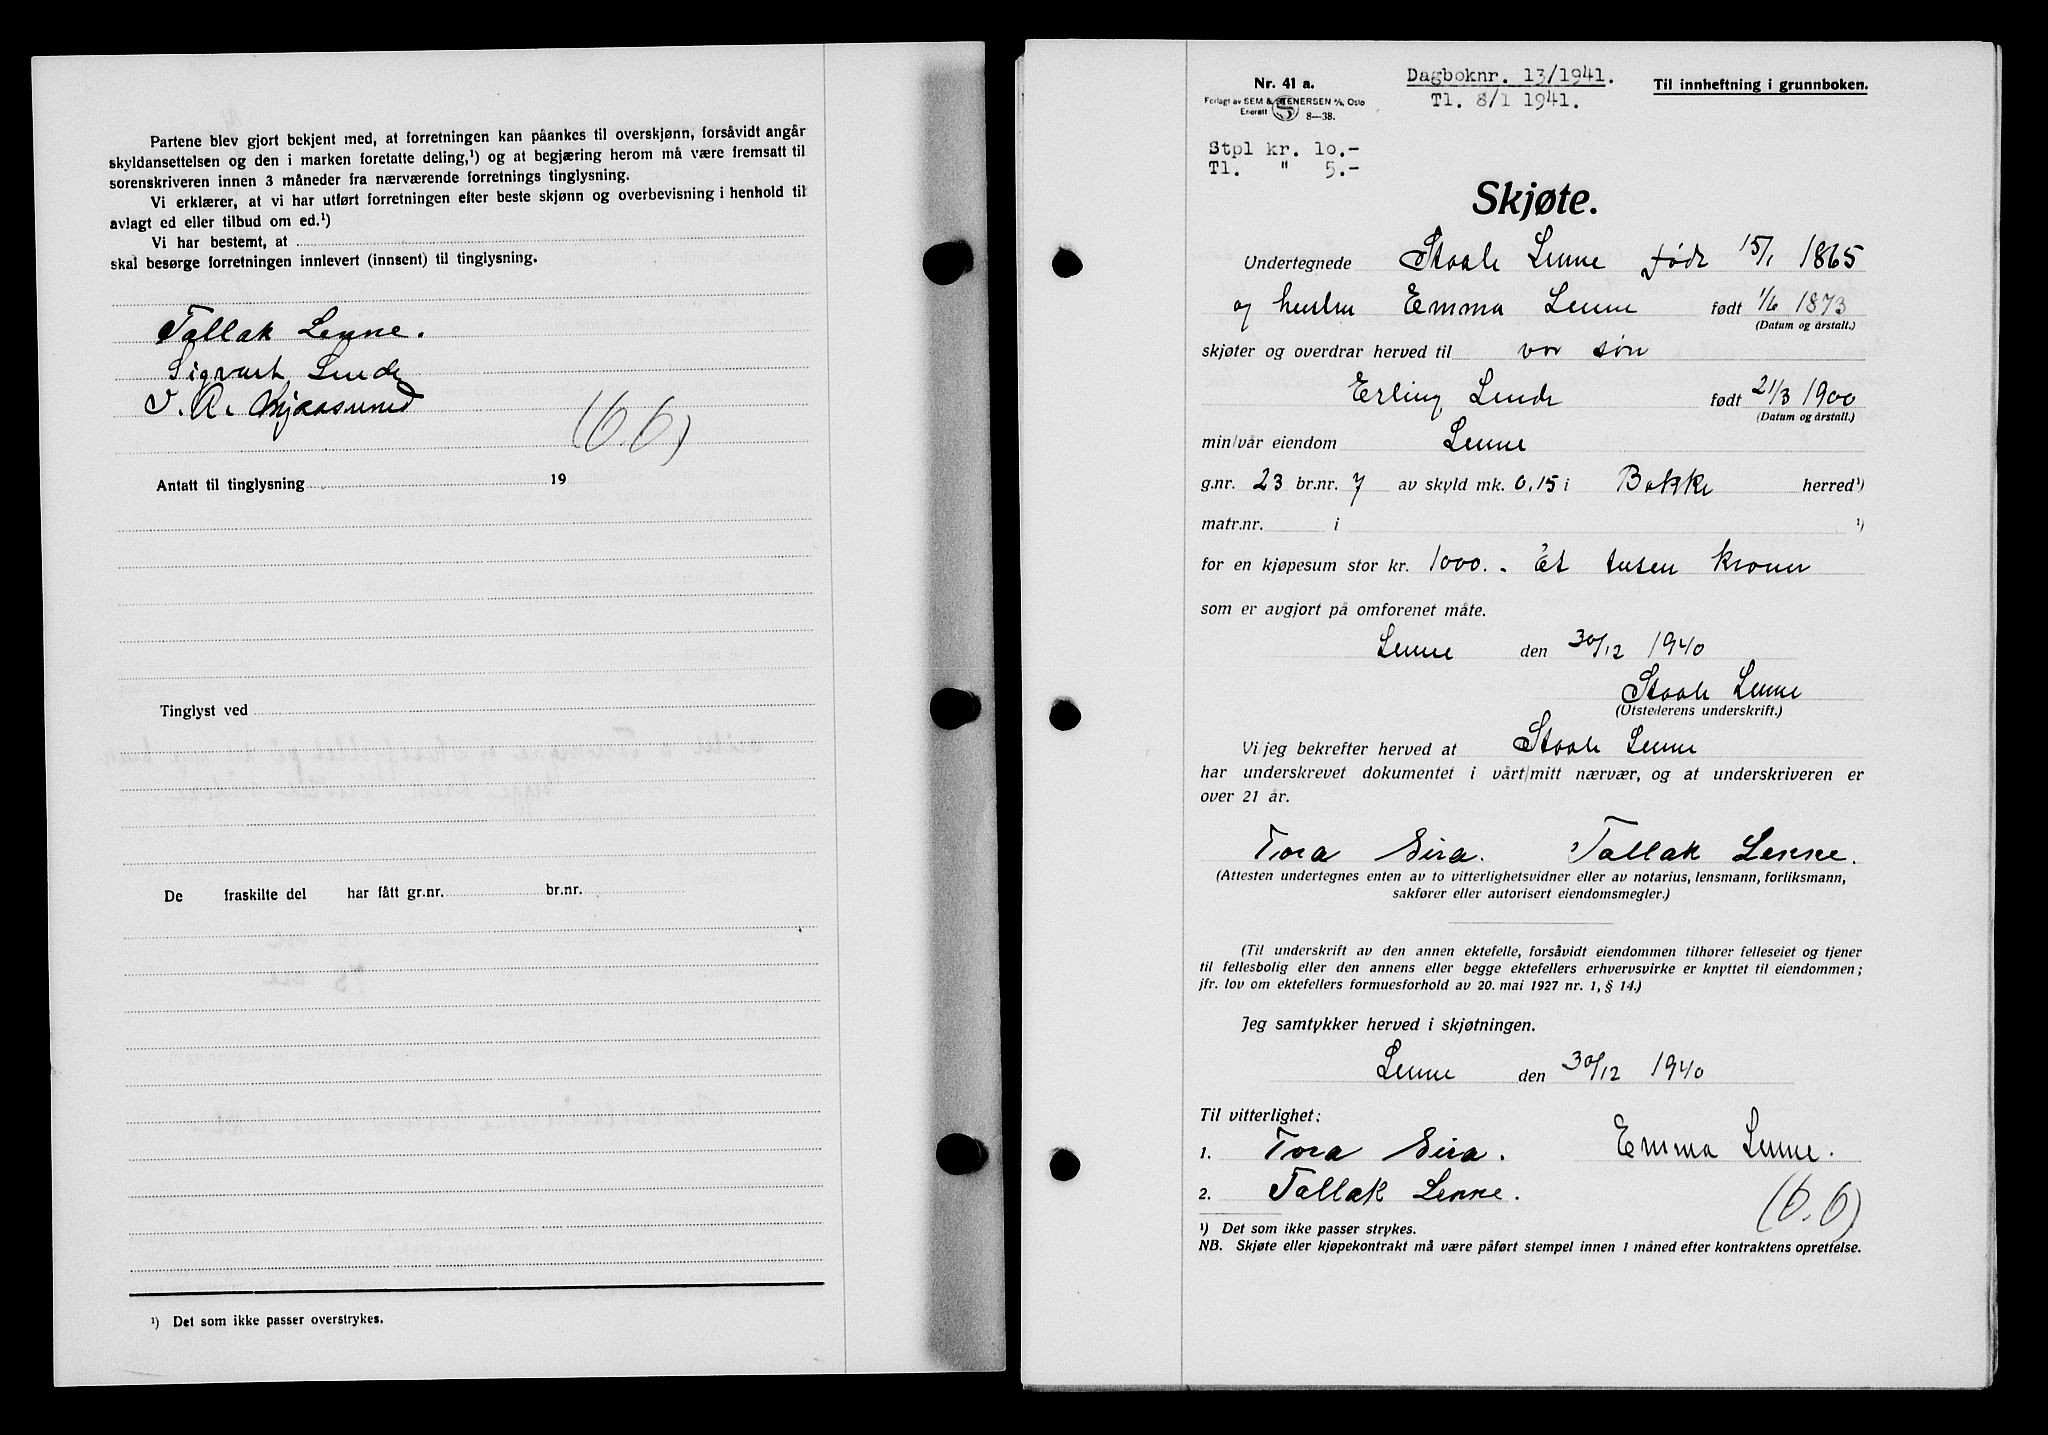 Partene blev gjort bekjent med, at forretningen kan påankes til overskjønn, forsåvidt angår
skyldansettelsen og den i marken foretatte deling,¹) og at begjæring herom må være fremsatt til
sorenskriveren innen 3 måneder fra nærværende forretnings tinglysning.
Vi erklærer, at vi har utført forretningen efter beste skjønn og overbevisning i henhold til
avlagt ed eller tilbud om ed.¹)
Vi har bestemt, at
skal besørge forretningen innlevert (innsent) til tinglysning.
Tallak Lenne.
Sigvart Lende
(6.6)
Antatt til tinglysning 19
Tinglyst ved
De fraskilte del har fått gr.nr. br.nr.
¹) Det som ikke passer overstrykes.
Nr. 41 a.
Forlagt av SEM & STENERSEN A/S, Oslo
Enerett S 8—38.
Dagboknr. 13/1941.
Tl. 8/1 1941.
Til innheftning i grunnboken.
Stpl kr. 10.-
Tl. " 5.-
Skjøte.
Undertegnede Staale Lenne født 15/1 1865
og hustru Emma Lenne født 1/6 1873
(Datum og årstall.)
skjøter og overdrar herved til vor søn
Erling Lende født 21/3 1900
(Datum og årstall.)
min/vår eiendom Lenne
g.nr. 23 br.nr. 7 av skyld mk. 0.15 i Bakke herred¹)
matr.nr. i ¹)
for en kjøpesum stor kr. 1000.- Et tusen kroner
som er avgjort på omforenet måte.
Lenne den 30/12 1940
Staale Lenne
(Utstederens underskrift.)
Vi/jeg bekrefter herved at Staale Lenne
har underskrevet dokumentet i vårt/mitt nærvær, og at underskriveren er
over 21 år.
Tora Sira. Tallak Lenne.
(Attesten undertegnes enten av to vitterlighetsvidner eller av notarius, lensmann, forliksmann,
sakfører eller autorisert eiendomsmegler.)
(Til underskrift av den annen ektefelle, forsåvidt eiendommen tilhører felleseiet og tjener
til fellesbolig eller den annens eller begge ektefellers erhvervsvirke er knyttet til eiendommen;
jfr. lov om ektefellers formuesforhold av 20. mai 1927 nr. 1, § 14.)
Jeg samtykker herved i skjøtningen.
Lenne den 30/12 1940
Til vitterlighet:
1. Tora Sira. Emma Lenne.
2. Tallak Lenne.
(6.6)
¹) Det som ikke passer strykes.
NB. Skjøte eller kjøpekontrakt må være påført stempel innen 1 måned efter kontraktens oprettelse.